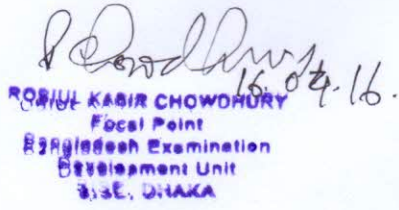 R Chowdhury
16.04.16.
ROBIUL KABIR CHOWDHURY
Focal Point
Bangladesh Examination
Development Unit
BISE, DHAKA